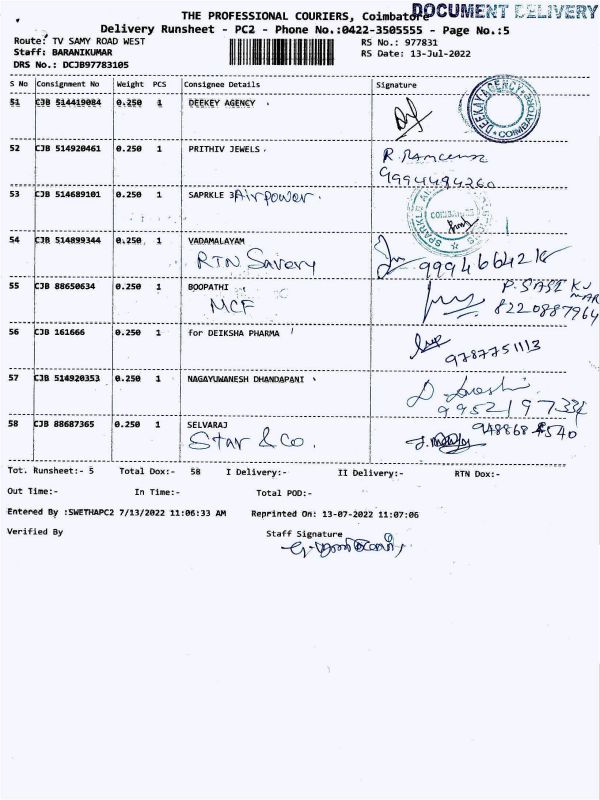 THE PROFESSIONAL COURIERS, Coimbatore
DOCUMENT DELIVERY
Delivery Runsheet - PC2 - Phone No.:0422-3505555 - Page No.:5
Route: TV SAMY ROAD WEST
RS No.: 977831
Staff: BARANIKUMAR
RS Date: 13-Jul-2022
DRS No.: DCJB97783105
S No Consignment No Weight PCS Consignee Details Signature
51 CJB 514419084 0.250 1 DEEKEY AGENCY
DEEKAY AGENCY COIMBATORE
52 CJB 514920461 0.250 1 PRITHIV JEWELS
9994494260
53 CJB 514689101 0.250 1 SAPRKLE 3 Airpower.
SPARKLE COIMBATORE
54 CJB 514899344 0.250 1 VADAMALAYAM
RTN Savory
55 CJB 88650634 0.250 1 BOOPATHI
MCF
P. SASI KUMAR
8220887964
56 CJB 161666 0.250 1 for DEIKSHA PHARMA
9787751113
57 CJB 514920353 0.250 1 NAGAYUWANESH DHANDAPANI
58 CJB 88687365 0.250 1 SELVARAJ
Star & Co.
Tot. Runsheet:- 5 Total Dox:- 58 I Delivery:- II Delivery:- RTN Dox:-
Out Time:- In Time:- Total POD:-
Entered By :SWETHAPC2 7/13/2022 11:06:33 AM Reprinted On: 13-07-2022 11:07:06
Verified By
Staff Signature